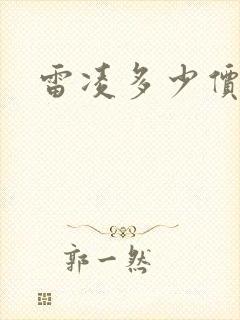 雷凌多少價
郭一然